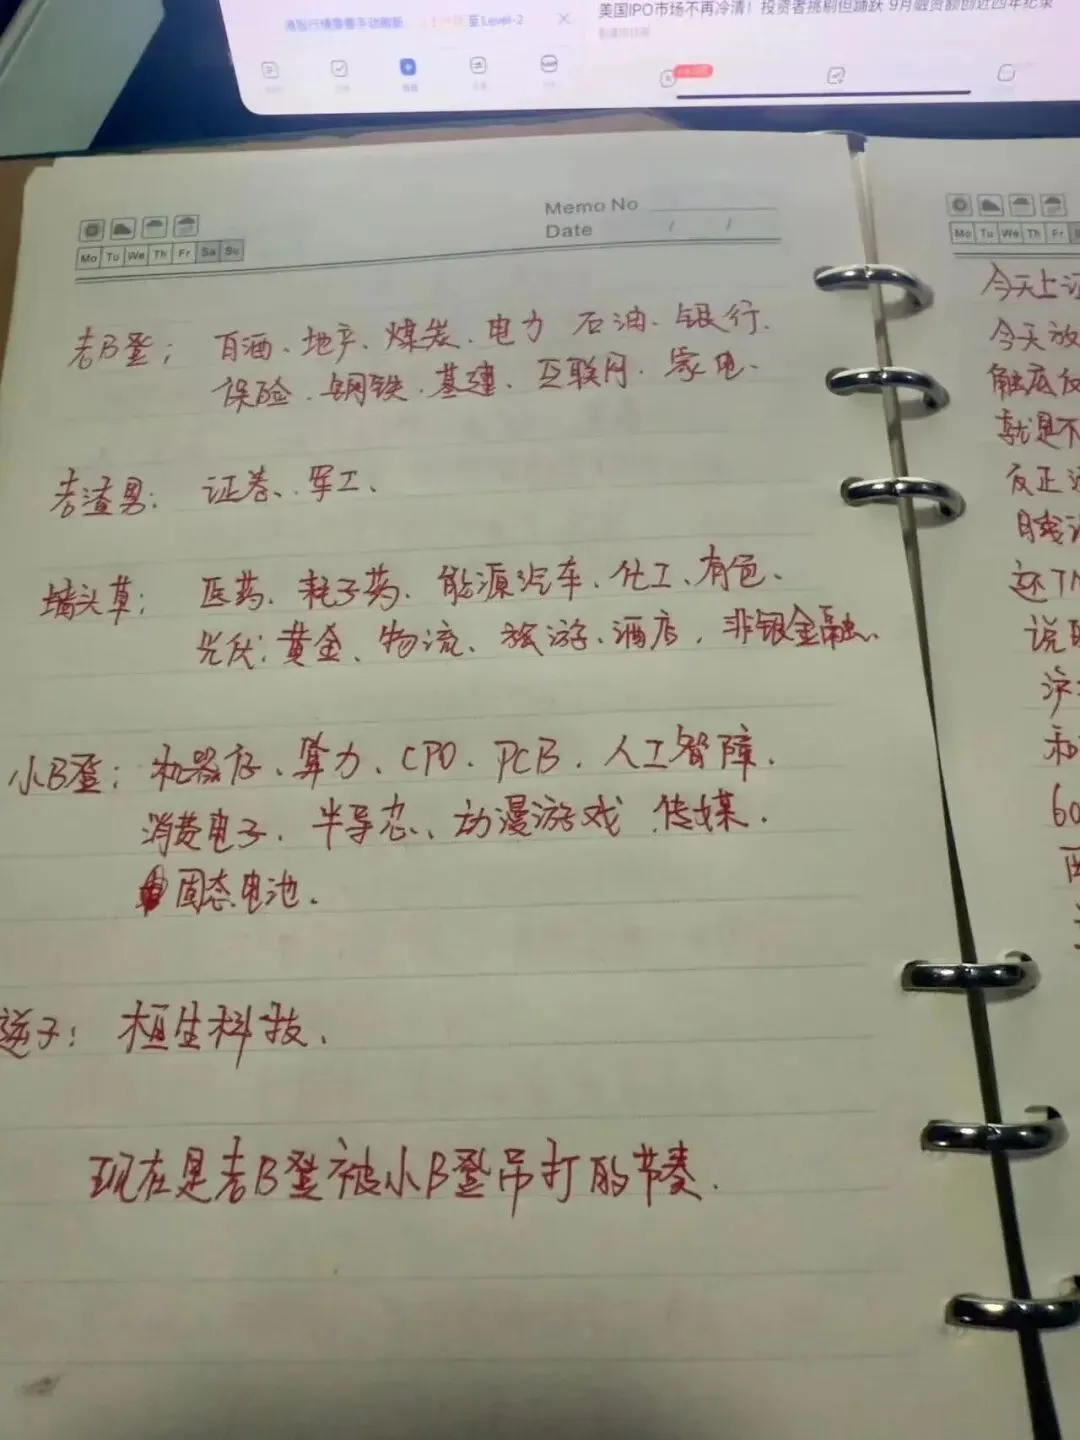 港股行情需要手动刷新
至Level-2
美国IPO市场不再冷清！投资者挑剔但踊跃 9月融资额创近四年纪录
Memo No
Date / /
Mo Tu We Th Fr Sa Su
Mo Tu We Th Fr
老B登：百酒、地产、煤炭、电力 石油、银行、
保险、钢铁、基建、互联网、家电、
老渣男：证券、军工、
墙头草：医药、耗子药、能源汽车、化工、有色、
光伏、黄金、物流、旅游、酒店，非银金融、
小B登：机器仔、算力、CPO、PCB、人工智障、
消费电子、半导芯、动漫游戏 传媒、
固态电池。
逆子：恒生科技、
现在是老B登被小B登吊打的节奏.
今天上证
今天放
触底反
就是不
反正
还TM
说
和
60